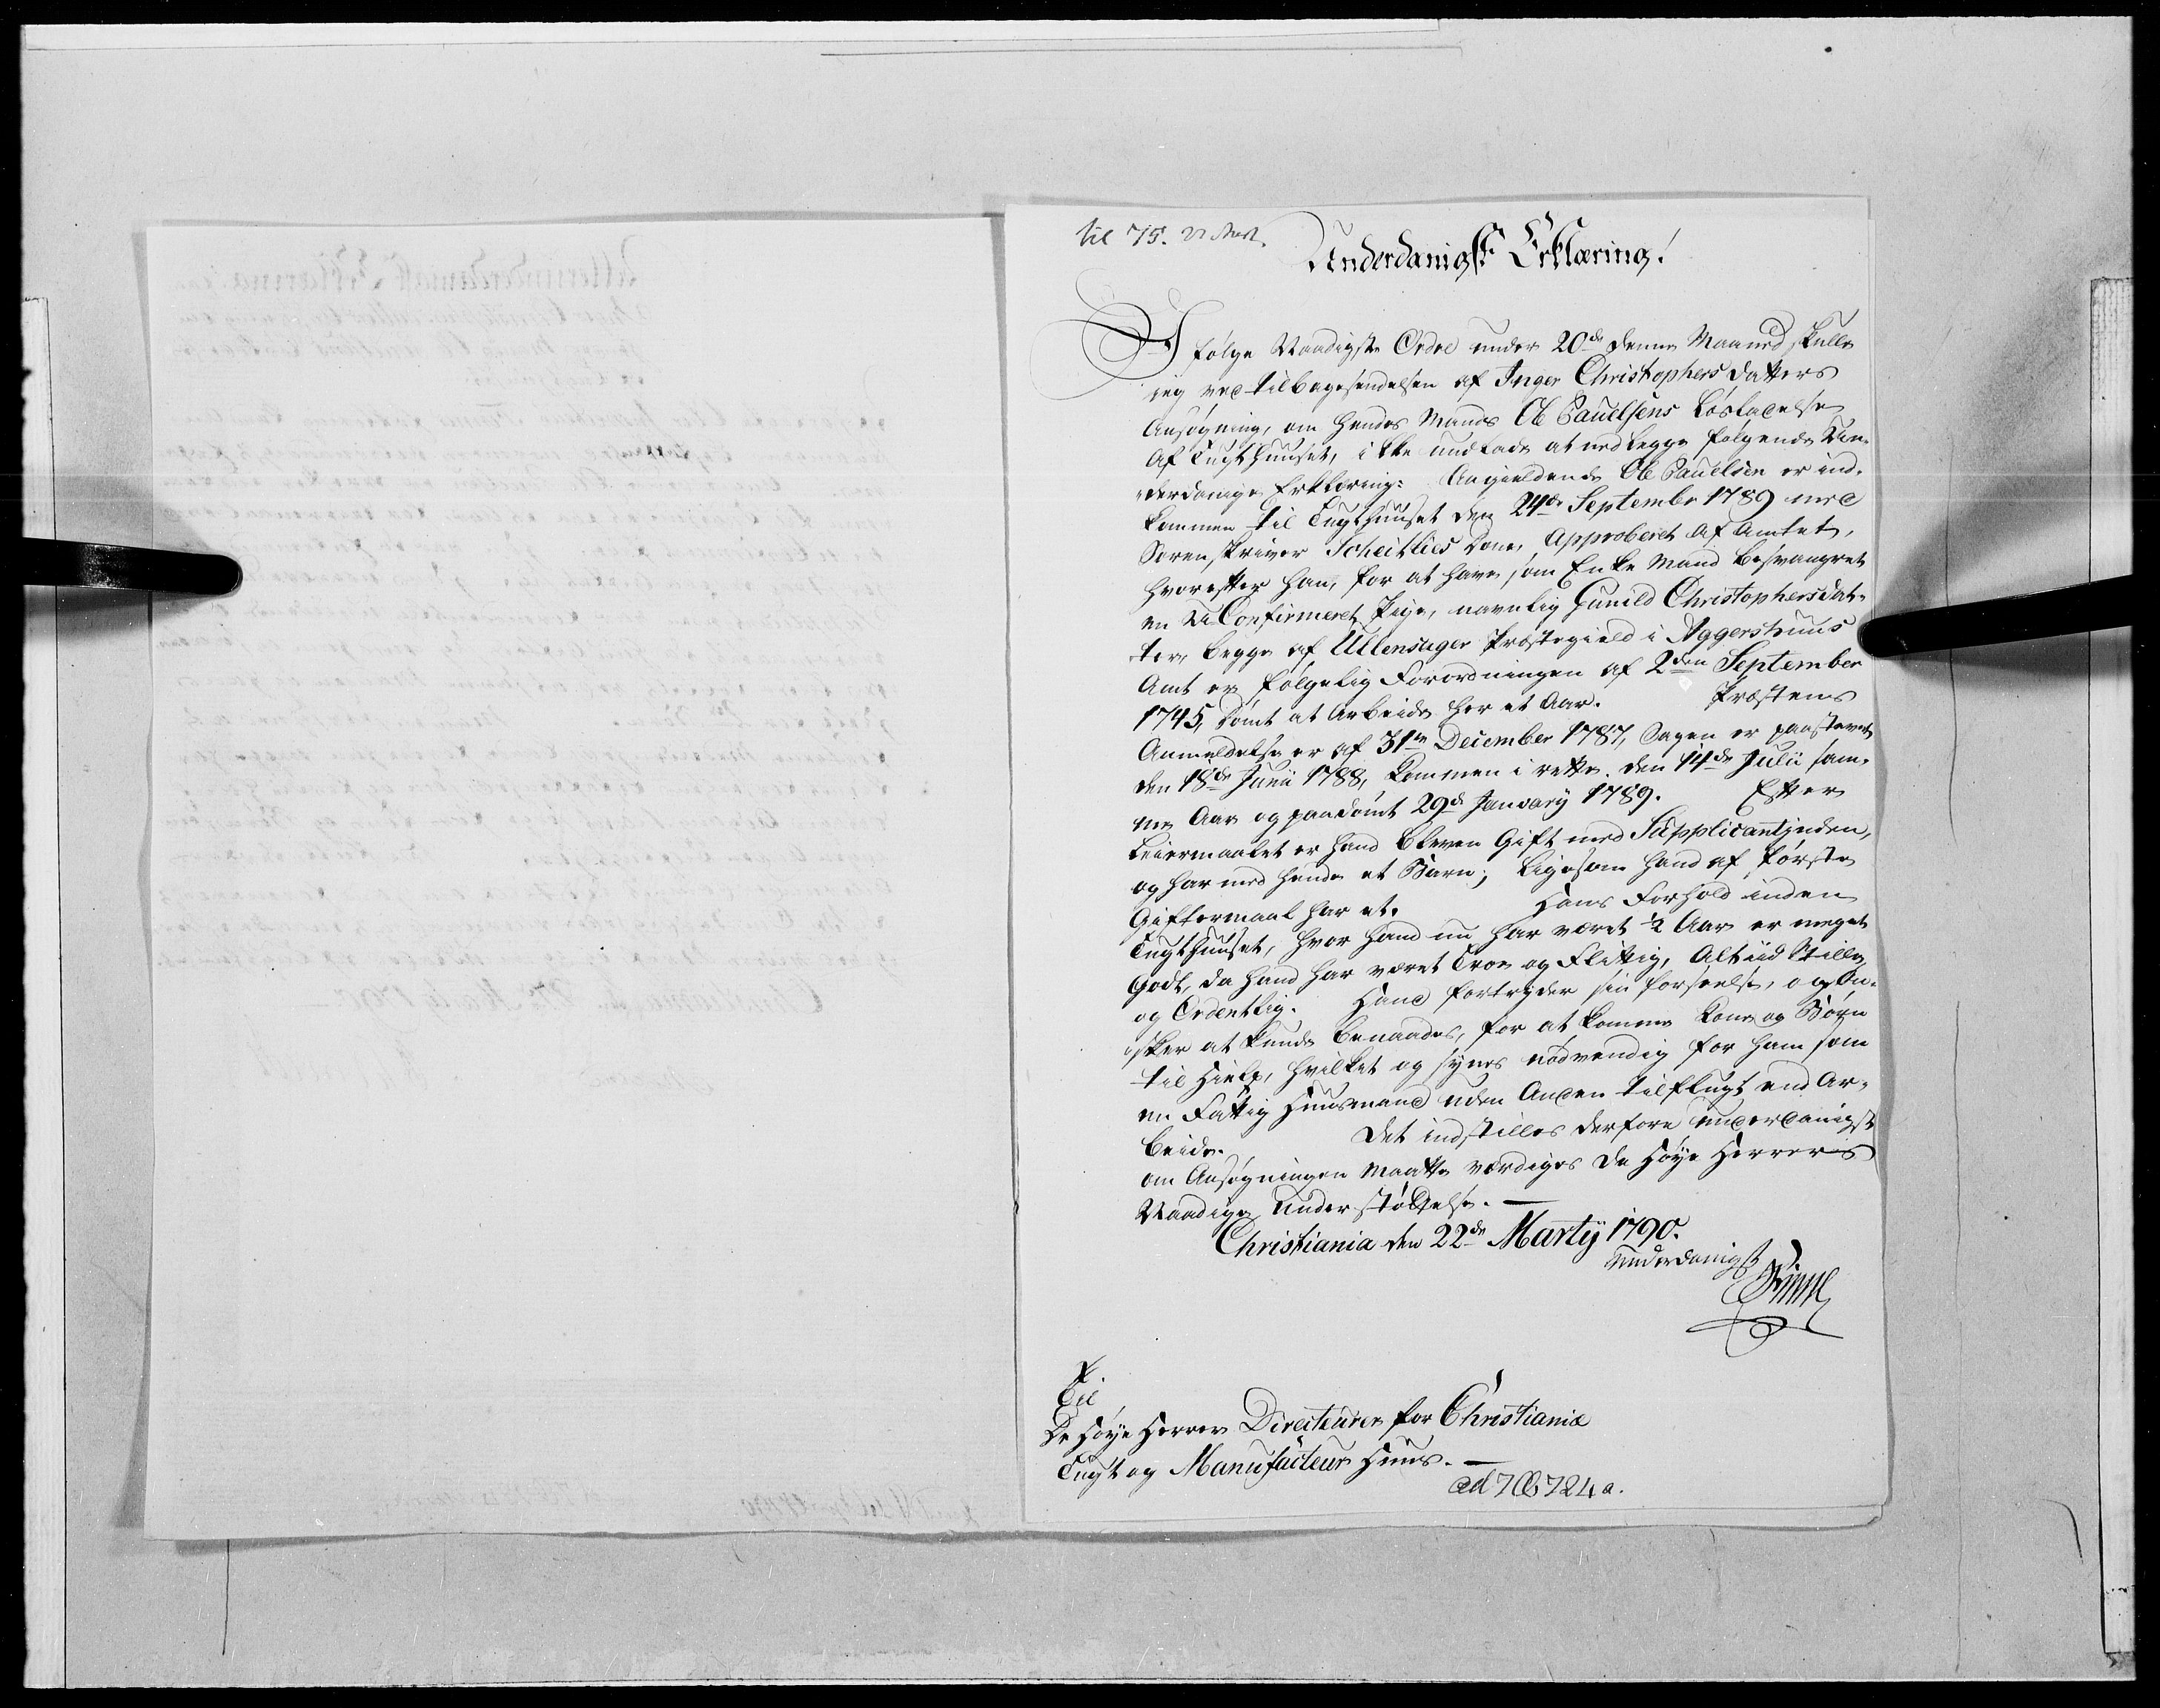 til 715.
Underdanigst Erklæring!
I følge Naadigste Ordre under 20de denne Maaned skulle
jeg ved tilbagesendelsen af Inger Christophersdatters
Ansøgning, om hendes Mands Ole Pauelsens Løsladelse
Af Tugthuuset, ikke undlade at nedlegge følgende Un-
derdanige Erklæring: Angieldende Ole Pauelsen er ind-
kommen til Tugthuuset den 24de Septembr 1789 med
Sorenskriver Scheitlies Dom, Approberet af Amtet,
hvorefter han, for at have som Enke Mand besvangret
en UConfirmeret Pige, navnlig Gunild Christophersdat-
ter, begge af Ullensager Præstegield i Aggershuus
Amt er følgelig Forordningen af 2den September
1745, dømt at Arbeide her et Aar. Præstens
Anmeldelse er af 31te December 1787, Sagen er paastevnt
den 18de Junii 1788, kommen i rette den 14de Julii sam-
me Aar og paadømt 29de January 1789. Efter
Leiermaalet er hand bleven Gift med Supplicantinden,
og har med hende et Barn; ligesom hand af første
Giftermaal har et. Hans Forhold inden
Tugthuuset, hvor hand nu har været 1/2 Aar er meget
Godt, da hand har været Troe og Flittig, Altiid Stille
og Ordentlig. Hand fortryder sin forseelse, og Øn-
sker at kunde benaades, for at komme Kone og Børn
til Hielp, hvilket og synes nødvendig for ham som
en Fattig Huusmand uden Anden tilflugt end Ar-
beide. Det indstilles derfore underdanigst
om Ansøgningen maatte værdiges De Høye Herrers
Naadige Understøttelse. —
Christiania den 22de Martij 1790.
Underdanigst
Til
De Høye Herrer Directeurer for Christianiæ
Tugt og Manufacteur Huus. —
ad 7 B 724 a.